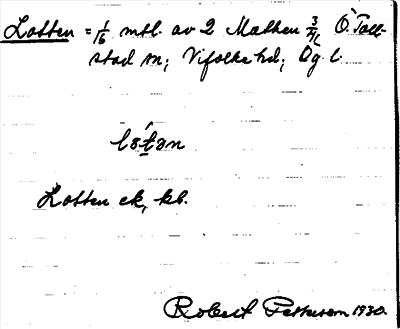 Lotten = 1/16 mtl. av 2 Mathem 3/4 Ö. Toll-
stad sn; Vifolka hd; Ög. l.
Lotten ek, kb.
Robert Petterson 1930.